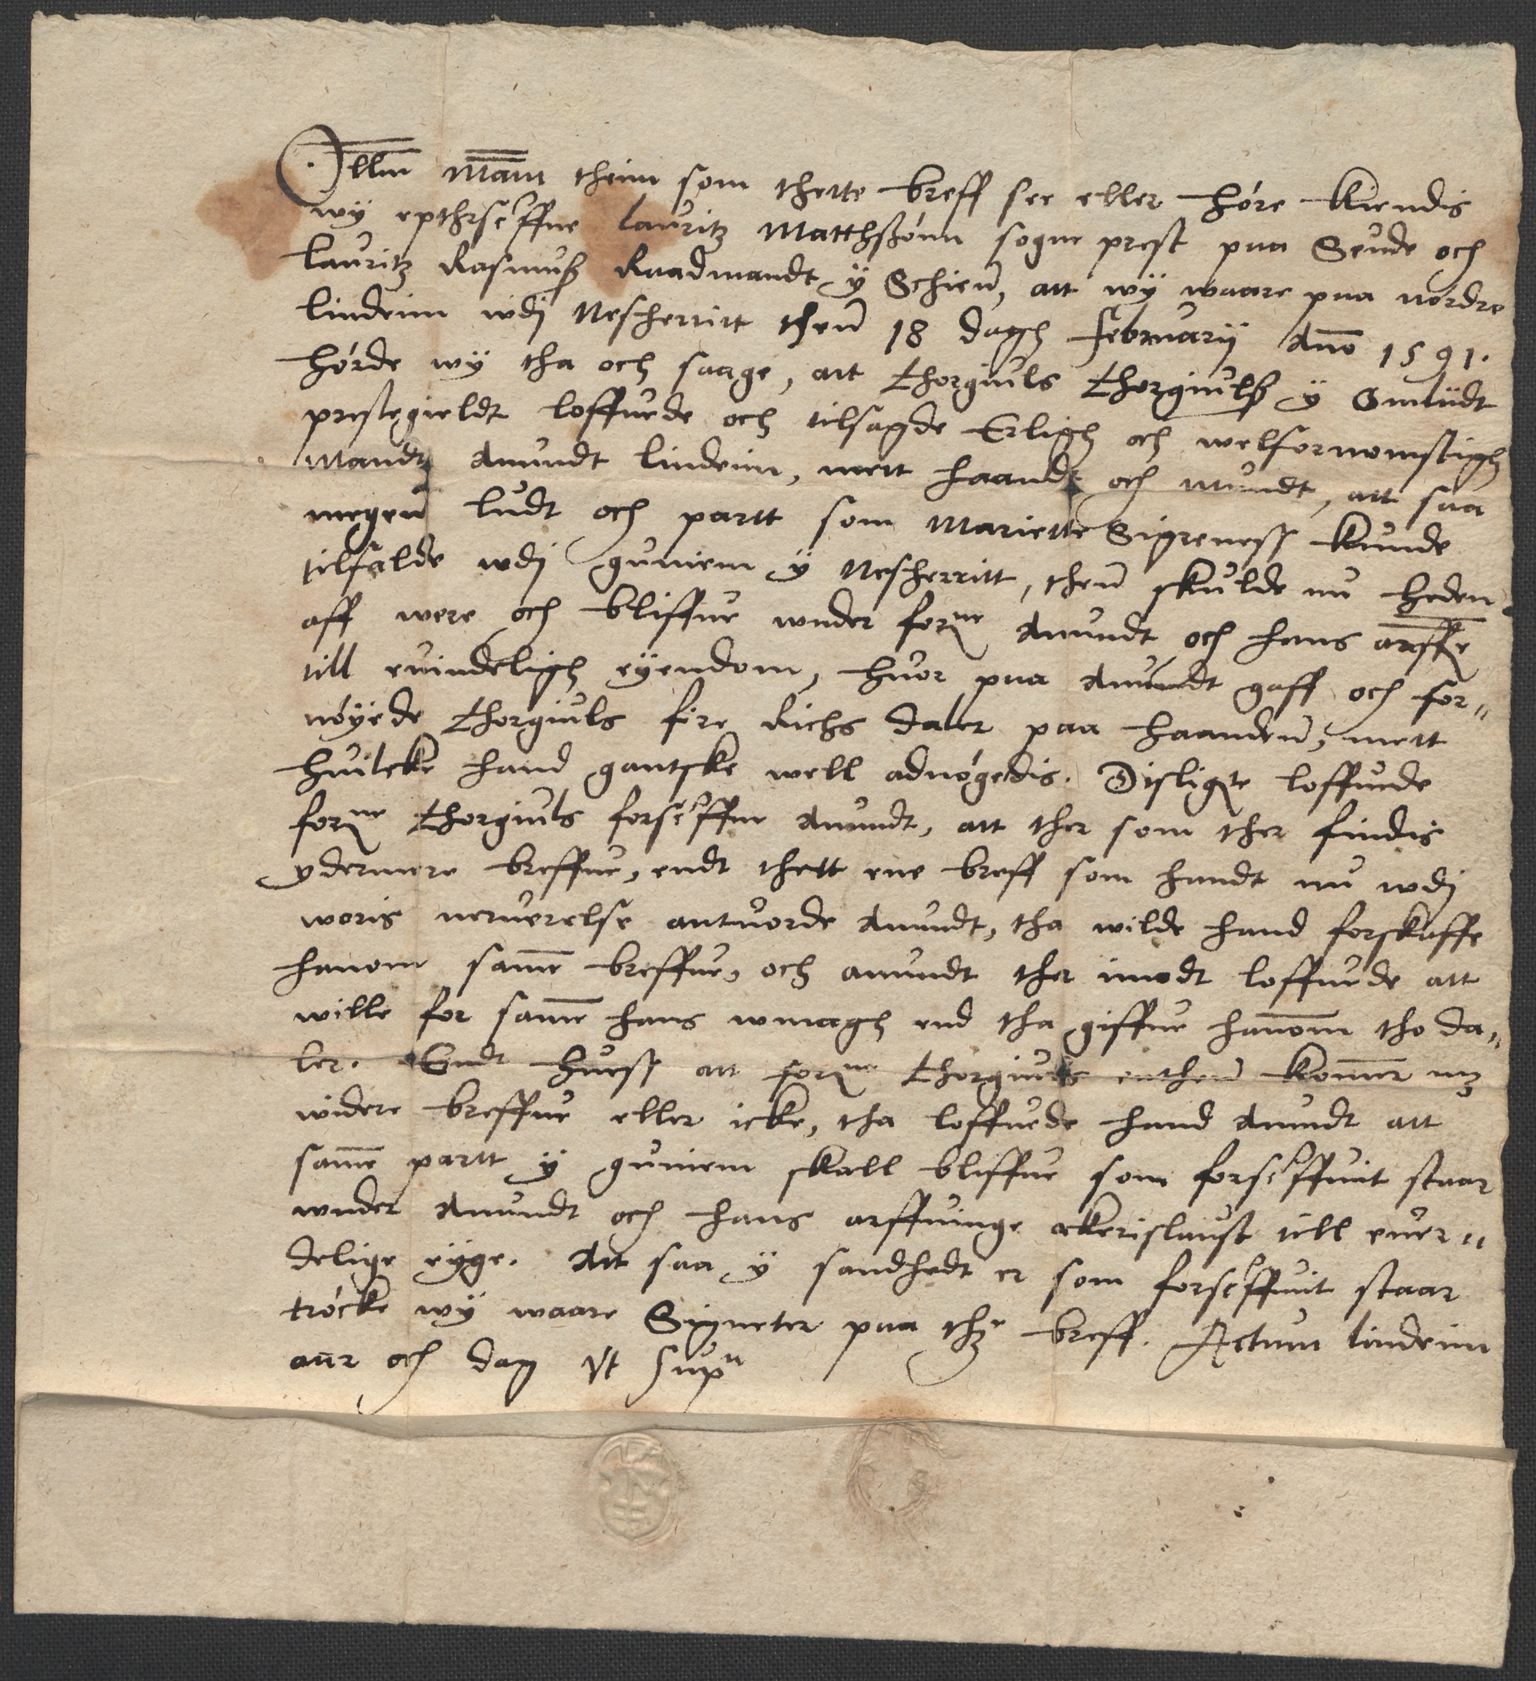 Allm̄ Mām theim som thette breff see eller høre kiendis
wy epthrscrffne lauritz Matthsßønn sogne prest paa Seude och
lauritz Rasmuß Raadmandt ÿ Schien̄, att wÿ waare paa nordre
lindeim wdj Nescherritt then̄ 18 dagh februarij Ano 1591.
hørde wÿ tha och saage, att Thorgiuls Thorgiulß ÿ Smüdt
prestegieldt loffuede och tilsagde Erligh och welfornomstigh
Mandt Anundt lindeim, mett haandt och mundt, att saa
megen̄ ludt och partt som Mariette Sigreness kunde
tilfalde wdj guniem ÿ Nescherritt, then̄ skulde nu heden
aff were och bliffue wnder forne Anundt och hans arffe
till euindeligh eÿendom, huor paa Anundt gaff och for„
nøÿede Thorgiuls fire Richs daler paa haanden̄, mett
huilcke hand gantske well adnøgedis. Disligte loffuede
forne Thorgiuls forscrffne Anundt, att ther som ther findis
ydermere breffue, endt thett ene breff som handt nu wdj
woris neruerelse antuorde Anundt, tha wilde hand forskaffe
hanom same breffue, och anundt ther imodt loffuede att
wille for same hans wmagh end tha giffue hanom tho da„
ler. Endt huess att forne Thorgiuls enthen̄ komer mz
widere breffue eller icke, tha loffuede hand Anundt att
same partt ÿ guniem skall bliffue som forscrffuit staar
wnder Anundt och hans arffuinge akerislaust till euer„
delige eÿge. Att saa ÿ sandhedt er som forscrffuit staar
trøcke wÿ waare Signeter paa thz breff. Actum lindeim
aar och dag Vt supra